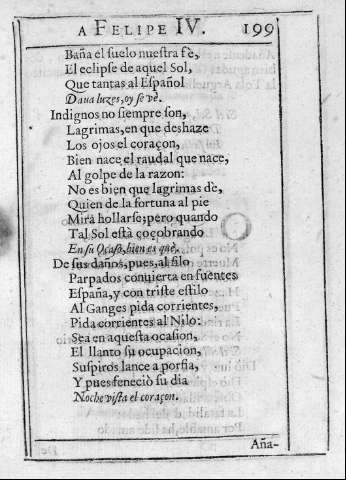 A FELIPE IV. 199
Baña el ſuelo nueſtra fè,
El eclipſe de aquel Sol,
Que tantas al Eſpañol
Daua luzes, oy ſe vè.
Indignos no ſiempre ſon,
Lagrimas, en que deshaze
Los ojos el coraçon,
Bien nace el raudal que nace,
Al golpe de la razon:
No es bien que lagrimas dè,
Quien de la fortuna al pie
Mira hollarſe; pero quando
Tal Sol eſtà çoçobrando
En ſu Ocaſo, bien es què.
De ſus daños, pues, al filo
Parpados conuierta en fuentes
Eſpaña, y con triſte eſtilo
Al Ganges pida corrientes,
Pida corrientes al Nilo:
Sea en aqueſta ocaſion,
El llanto ſu ocupacion,
Suſpiros lance a porfia,
Y pues feneciò ſu dia
Noche viſta el coraçon.
Aña-